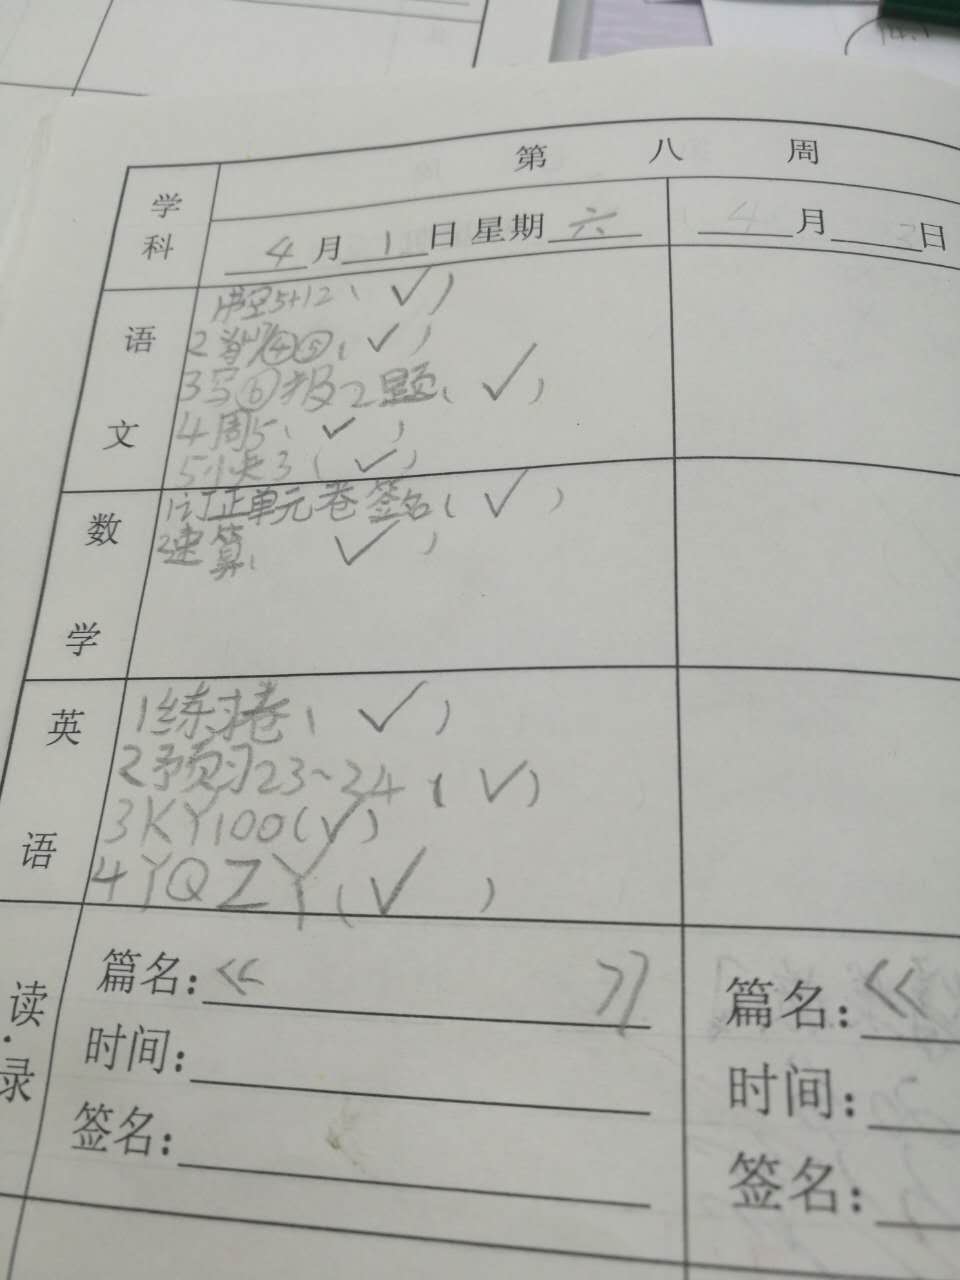 第 八 周
学科
4月1日 星期六
4月3日
语文
书空5+12（✓）
2背④⑤（✓）
3写⑥报2题（✓）
4周5（✓）
5小夹3（✓）
数学
1订正单元卷签名（✓）
2速算（✓）
英语
1练习卷（✓）
2预习23~24（✓）
3KY100（✓）
4YQZY（✓）
读·录
篇名：《 》
时间：
签名：
篇名：《
时间：
签名：